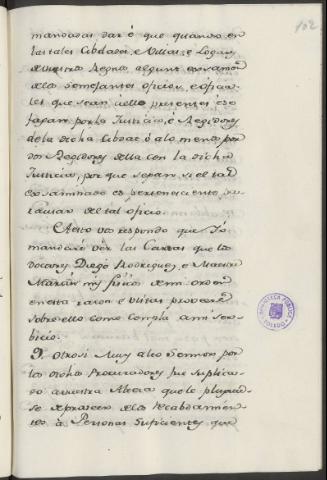 102
mandadas dar é que quando en
las tales Cibdades, e Villas, e Logares
de vuestros Regnos, algunt exsamen
de los semejantes oficios, e oficia-
les que sean á ello presentes é se
fagan por la Justicia, é Regidores
de la dicha Cibdat ó alo menos por
dos Regidores della con la dicha
Justicia, por que sepan si el tal
exsaminado es pertenesciente pa
usar del tal oficio.
A esto vos respondo que Yo
mandaré ver las Cartas que los
Doctores Diego Rodriguez, e Maestre
Martin mis fisicos tienen
en esta razon e vistas proveeré
sobre ello como compla ami ser-
bicio.
Otrosi Muy alto Sennor por
los dichos Procuradores fue suplica-
do a vuestra Alteza que le plugie-
se de proveer de los Recabdamien-
tos á Personas Suficientes, que
BIBLIOTECA PUBLICA
TOLEDO